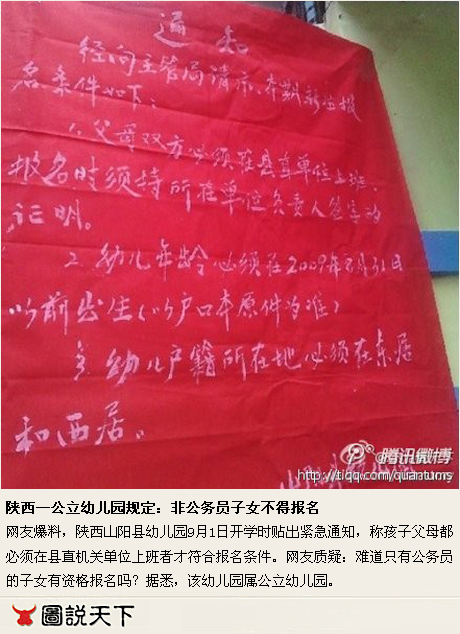 通知
经向主管局请示、本期新生报
名条件如下:
1. 父母双方必须在县直单位上班、
报名时须持所在单位负责人签字的
证明。
2. 幼儿年龄必须在2009年8月31日
以前出生(以户口本原件为准)
3 幼儿户籍所在地必须在东居
和西居。
腾讯微博
http://tiqq.com/quantums
陕西一公立幼儿园规定:非公务员子女不得报名
网友爆料,陕西山阳县幼儿园9月1日开学时贴出紧急通知,称孩子父母都
必须在县直机关单位上班者才符合报名条件。网友质疑:难道只有公务员
的子女有资格报名吗?据悉,该幼儿园属公立幼儿园。
圖説天下